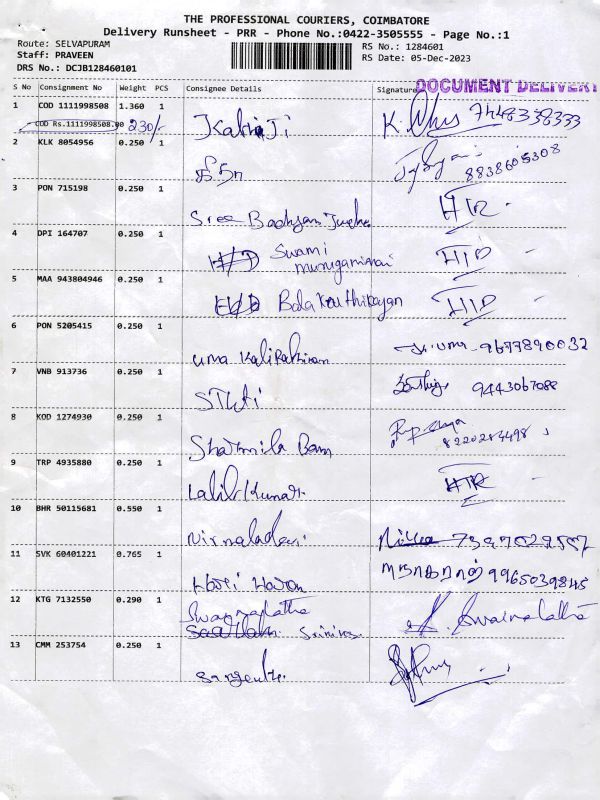 THE PROFESSIONAL COURIERS, COIMBATORE
Delivery Runsheet - PRR - Phone No.:0422-3505555 - Page No.:1
Route: SELVAPURAM
RS No.: 1284601
Staff: PRAVEEN
RS Date: 05-Dec-2023
DRS No.: DCJB128460101
DOCUMENT DELIVERY
S No Consignment No Weight PCS Consignee Details Signature
1 COD 1111998508 1.360 1
COD Rs.1111998508.00 230/-
K. 7448338333
2 KLK 8054956 0.250 1
8838605308
3 PON 715198 0.250 1 Sree
4 DPI 164707 0.250 1 Swami HID
5 MAA 943804946 0.250 1 Balakarthikayan HID
6 PON 5205415 0.250 1 uma 9677890032
7 VNB 913736 0.250 1 9443067088
8 KOD 1274930 0.250 1 Sharmila 8220284498
9 TRP 4935880 0.250 1 Lalit Kumar.
10 BHR 50115681 0.550 1 Nirmaladevi
11 SVK 60401221 0.765 1 Hari மநாகராஜ் 9965039845
12 KTG 7132550 0.290 1 Swarnalatha Swarnalatha
13 CMM 253754 0.250 1